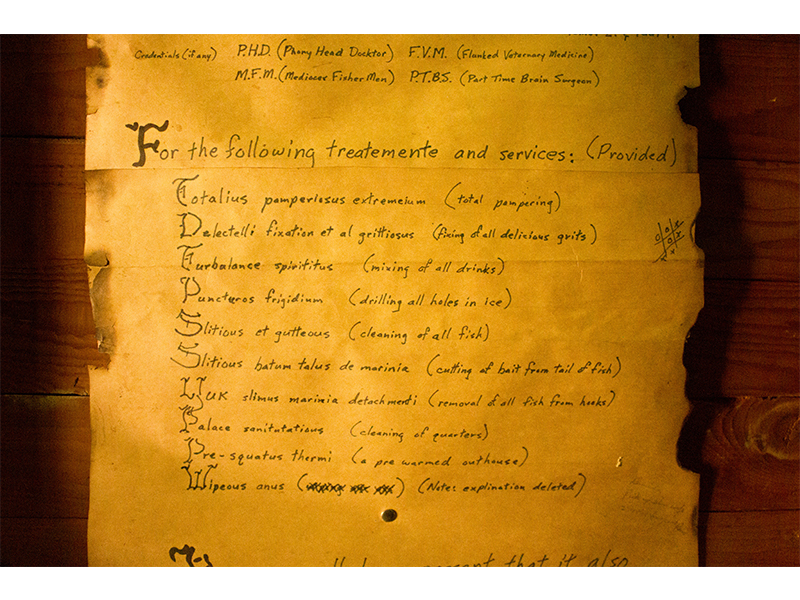 Credentials (if any) P.H.D. (Phony Head Docktor) F.V.M. (Flunked Veternary Medicine)
M.F.M. (Mediocer Fisher Men) P.T.B.S. (Part Time Brain Surgeon)
For the following treatemente and services: (Provided)
Totalius pamperiosus extremeium (total pampering)
Delectelli fixation et al grittiosus (fixing of all delicious grits)
Turbalance spirititus (mixing of all drinks)
Puncturos frigidium (drilling all holes in ice)
Slitious et gutteous (cleaning of all fish)
Slitious batum talus de marinia (cutting of bait from tail of fish)
YUK slimus marinia detachmenti (removal of all fish from hooks)
Palace sanitutations (cleaning of quarters)
Pre-squatus thermi (a pre warmed outhouse)
Wipeous anus ( ) (Note: explination deleted)
that it also